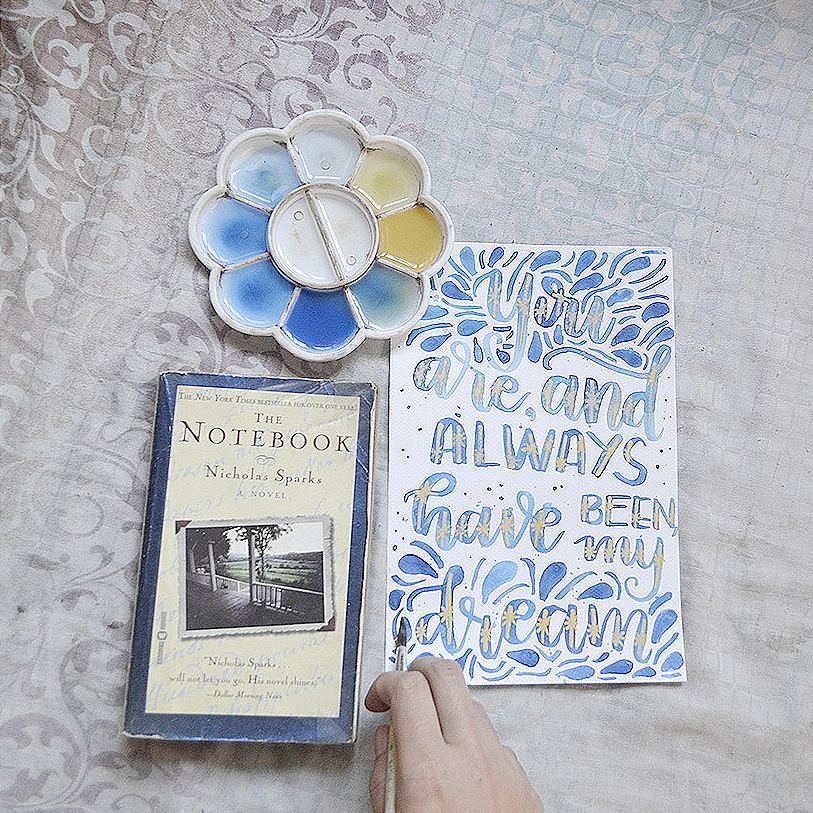 THE NEW YORK TIMES BESTSELLER FOR OVER ONE YEAR!
THE
NOTEBOOK
Nicholas Sparks
A NOVEL
"Nicholas Sparks . . .
will not let you go. His novel shines."
—Dallas Morning News
You
are and
ALWAYS
have BEEN
my
dream